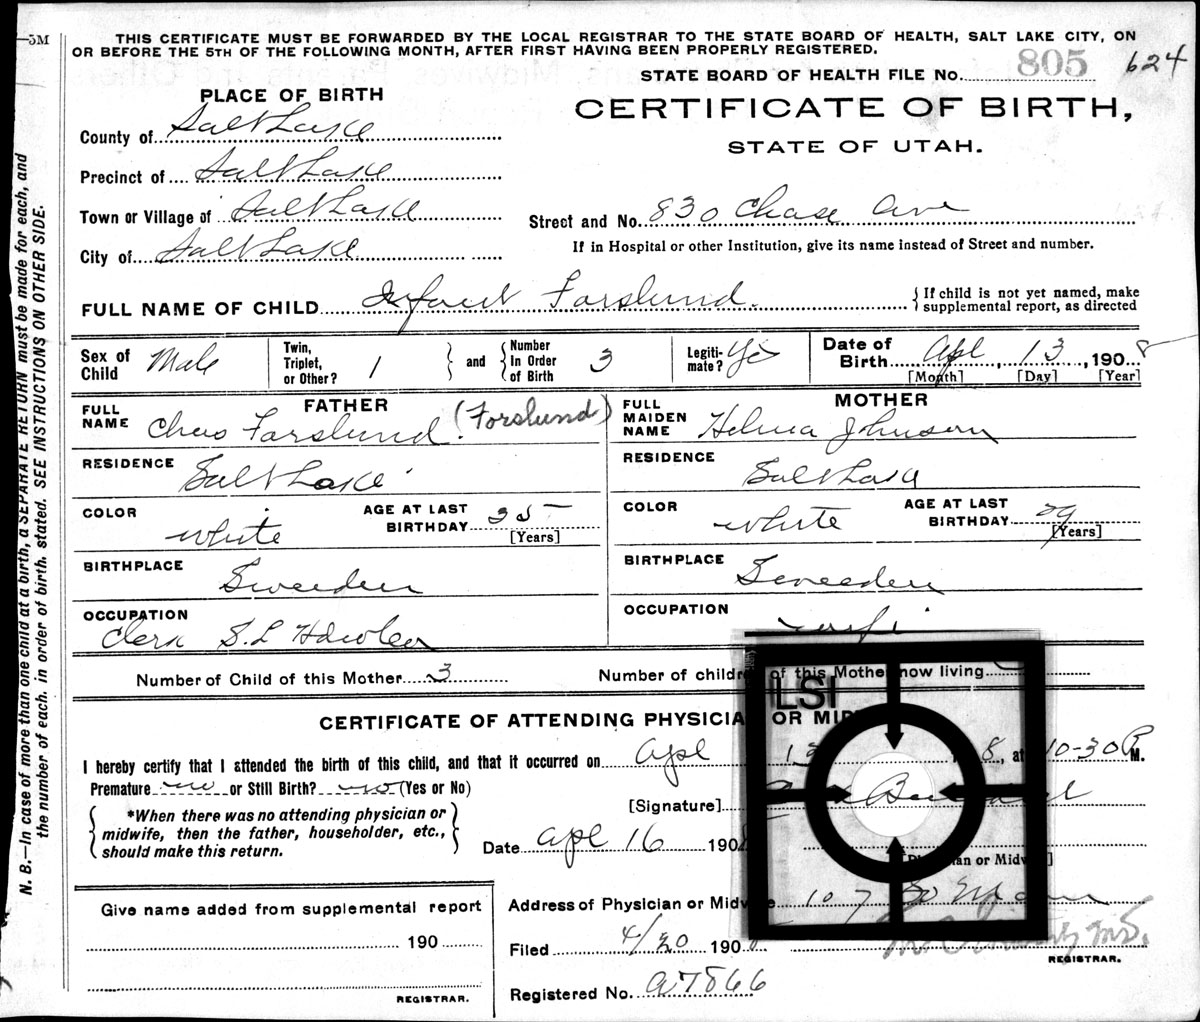 -5M
THIS CERTIFICATE MUST BE FORWARDED BY THE LOCAL REGISTRAR TO THE STATE BOARD OF HEALTH, SALT LAKE CITY, ON
OR BEFORE THE 5TH OF THE FOLLOWING MONTH, AFTER FIRST HAVING BEEN PROPERLY REGISTERED.
STATE BOARD OF HEALTH FILE No. 805 624
PLACE OF BIRTH
CERTIFICATE OF BIRTH,
STATE OF UTAH.
County of Salt Lake
Precinct of Salt Lake
Town or Village of Salt Lake
Street and No. 830 Chase Ave
City of Salt Lake
If in Hospital or other Institution, give its name instead of Street and number.
FULL NAME OF CHILD Infant Forslund
If child is not yet named, make
supplemental report, as directed
Sex of Child Male
Twin, Triplet, or Other? 1
and
Number In Order of Birth 3
Legitimate? Yes
Date of Birth Apl 13, 1908
[Month] [Day] [Year]
FATHER
FULL NAME Chas Forslund (Forslund)
RESIDENCE Salt Lake
COLOR white
AGE AT LAST BIRTHDAY 35
[Years]
BIRTHPLACE Sweeden
OCCUPATION Clerk S.L
MOTHER
FULL MAIDEN NAME Helma Johnson
RESIDENCE Salt Lake
COLOR white
AGE AT LAST BIRTHDAY 29
[Years]
BIRTHPLACE Sweeden
OCCUPATION
Number of Child of this Mother 3
Number of children of this Mother now living
CERTIFICATE OF ATTENDING PHYSICIAN OR MIDWIFE
I hereby certify that I attended the birth of this child, and that it occurred on Apl 13 8, at 10-30 P M.
Premature no or Still Birth? no (Yes or No)
*When there was no attending physician or
midwife, then the father, householder, etc.,
should make this return.
[Signature]
Date Apl 16 1908
[Physician or Midwife]
Give name added from supplemental report
190
REGISTRAR.
Address of Physician or Midwife 107 So Main
Filed 4/20 190
M.D.
REGISTRAR.
Registered No. a7866
N. B.—In case of more than one child at a birth, a SEPARATE RETURN must be made for each, and
the number of each, in order of birth, stated. SEE INSTRUCTIONS ON OTHER SIDE.
LSI